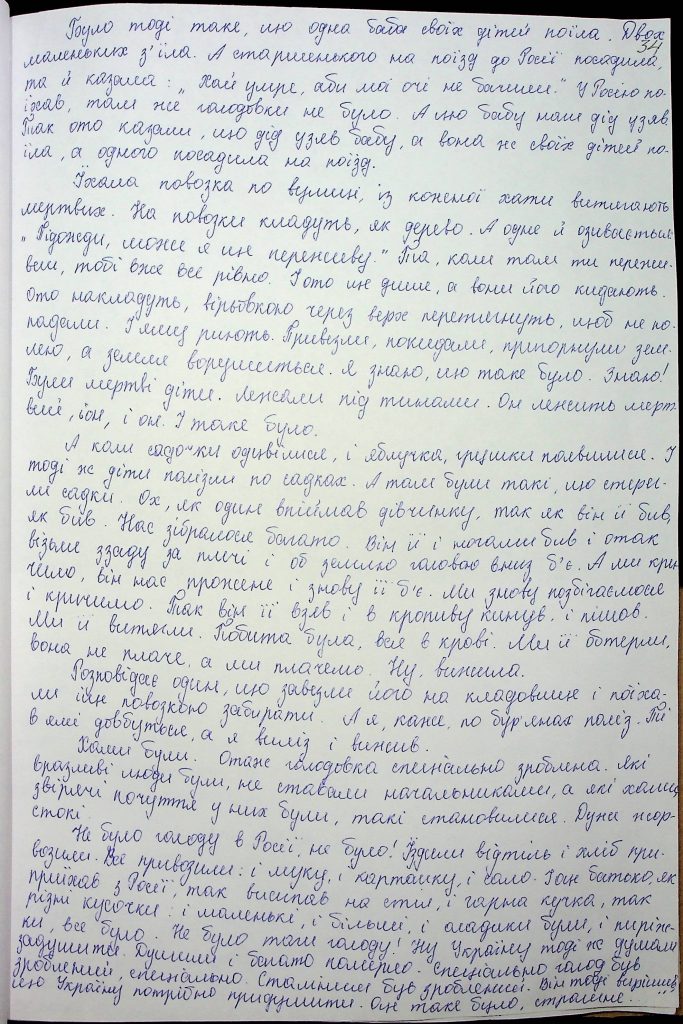 Було тоді таке, що одна баба своїх дітей поїла. Двох
34
маленьких з'їла. А старшенького на поїзд до Росії посадила,
та й казала: „Хай умре, аби мої очі не бачили." У Росію по-
їхав, там же голодовки не було. А цю бабу наш дід узяв.
Так ото казали, що дід узяв бабу, а вона ж своїх дітей по-
їла, а одного посадила на поїзд.
Їхала повозка по вулиці, із кожної хати витягають
мертвих. На повозки кладуть, як дерево. А одне й озивається:
„Підожди, може я ще переживу." Та, коли там ти пережи-
веш, тобі вже все рівно. І ото ще дише, а вони його кидають.
Ото накладуть, вірьовкою через верх перетягнуть, щоб не по-
падали. І яму риють. Привезли, покидали, пригорнули зем-
лею, а земля ворушиться. Я знаю, що таке було. Знаю!
Були мертві діти. Лежали під тинами. Он лежить мерт-
вий, і он, і он. І таке було.
А коли садочки одцвілися, і яблучка, грушки появилися. І
тоді ж діти полізли по садках. А там були такі, що стерег-
ли садки. Ох, як один впіймав дівчинку, так як він її бив,
як бив. Нас зібралося багато. Він її і ногами бив і отак
візьме ззаду за плечі і об землю головою вниз б'є. А ми кри-
чимо, він нас прожене і знову її б'є. Ми знову позбігаємося
і кричимо. Так він її взяв і в кропиву кинув, і пішов.
Ми її витягли. Побита була, вся в крові. Ми її обтерли,
вона не плаче, а ми плачемо. Ну, вижила.
Розповідає один, що завезли його на кладовище і поїха-
ли ще повозкою забирати. А я, каже, по бур'янах поліз. Ті
в ямі довбуться, а я виліз і вижив.
Хами були. Отаке голодовка спеціально зроблена. Які
вразливі люди були, не ставали начальниками, а які хами,
звірячі почуття у них були, такі становилися. Дуже жор-
стокі.
Не було голоду в Росії, не було! Їздили відтіль і хліб при-
возили. Все привозили: і муку, і картошку, і сало. І он батько, як
приїхав з Росії, так висипав на стіл, і гарна кучка, так
різні кусочки: і маленькі, і більші, і оладики були, і пиріж-
ки, все було. Не було там голоду! Ну Україну тоді ж думали
задушити. Душили і багато померло. Спеціально голод був
зроблений, спеціально. Сталіним був зроблений. Він тоді вирішив,
що Україну потрібно придушити. Он таке було, страшне...